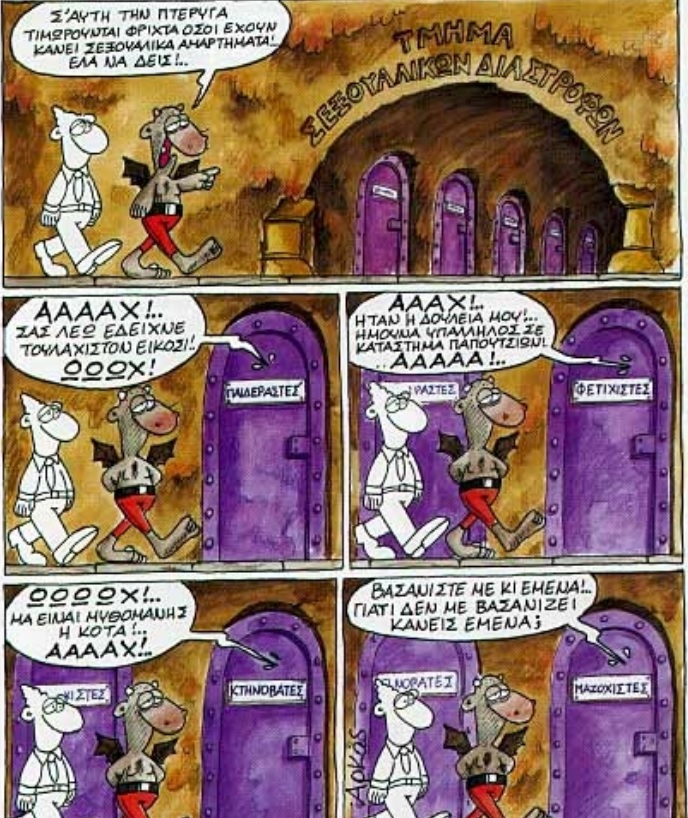 Σ'ΑΥΤΗ ΤΗΝ ΠΤΕΡΥΓΑ
ΤΙΜΩΡΟΥΝΤΑΙ ΦΡΙΧΤΑ ΟΣΟΙ ΕΧΟΥΝ
ΚΑΝΕΙ ΣΕΞΟΥΑΛΙΚΑ ΑΜΑΡΤΗΜΑΤΑ!..
ΕΛΑ ΝΑ ΔΕΙΣ!..
ΤΜΗΜΑ
ΣΕΞΟΥΑΛΙΚΩΝ ΔΙΑΣΤΡΟΦΩΝ
ΑΑΑΑΧ!..
ΣΑΣ ΛΕΩ ΕΔΕΙΧΝΕ
ΤΟΥΛΑΧΙΣΤΟΝ ΕΙΚΟΣΙ!..
ΩΩΩΧ!
ΠΑΙΔΕΡΑΣΤΕΣ
ΑΑΑΧ!..
ΗΤΑΝ Η ΔΟΥΛΕΙΑ ΜΟΥ!..
ΗΜΟΥΝΑ ΥΠΑΛΛΗΛΟΣ ΣΕ
ΚΑΤΑΣΤΗΜΑ ΠΑΠΟΥΤΣΙΩΝ!..
..ΑΑΑΑΑ!..
ΡΑΣΤΕΣ
ΦΕΤΙΧΙΣΤΕΣ
ΩΩΩΩΧ!..
ΜΑ ΕΙΝΑΙ ΜΥΘΟΜΑΝΗΣ
Η ΚΟΤΑ!..
ΑΑΑΑΧ!..
ΙΣΤΕΣ
ΚΤΗΝΟΒΑΤΕΣ
ΒΑΣΑΝΙΣΤΕ ΜΕ ΚΙ ΕΜΕΝΑ!..
ΓΙΑΤΙ ΔΕΝ ΜΕ ΒΑΣΑΝΙΖΕΙ
ΚΑΝΕΙΣ ΕΜΕΝΑ;
ΝΟΒΑΤΕΣ
ΜΑΖΟΧΙΣΤΕΣ
Αρκάς